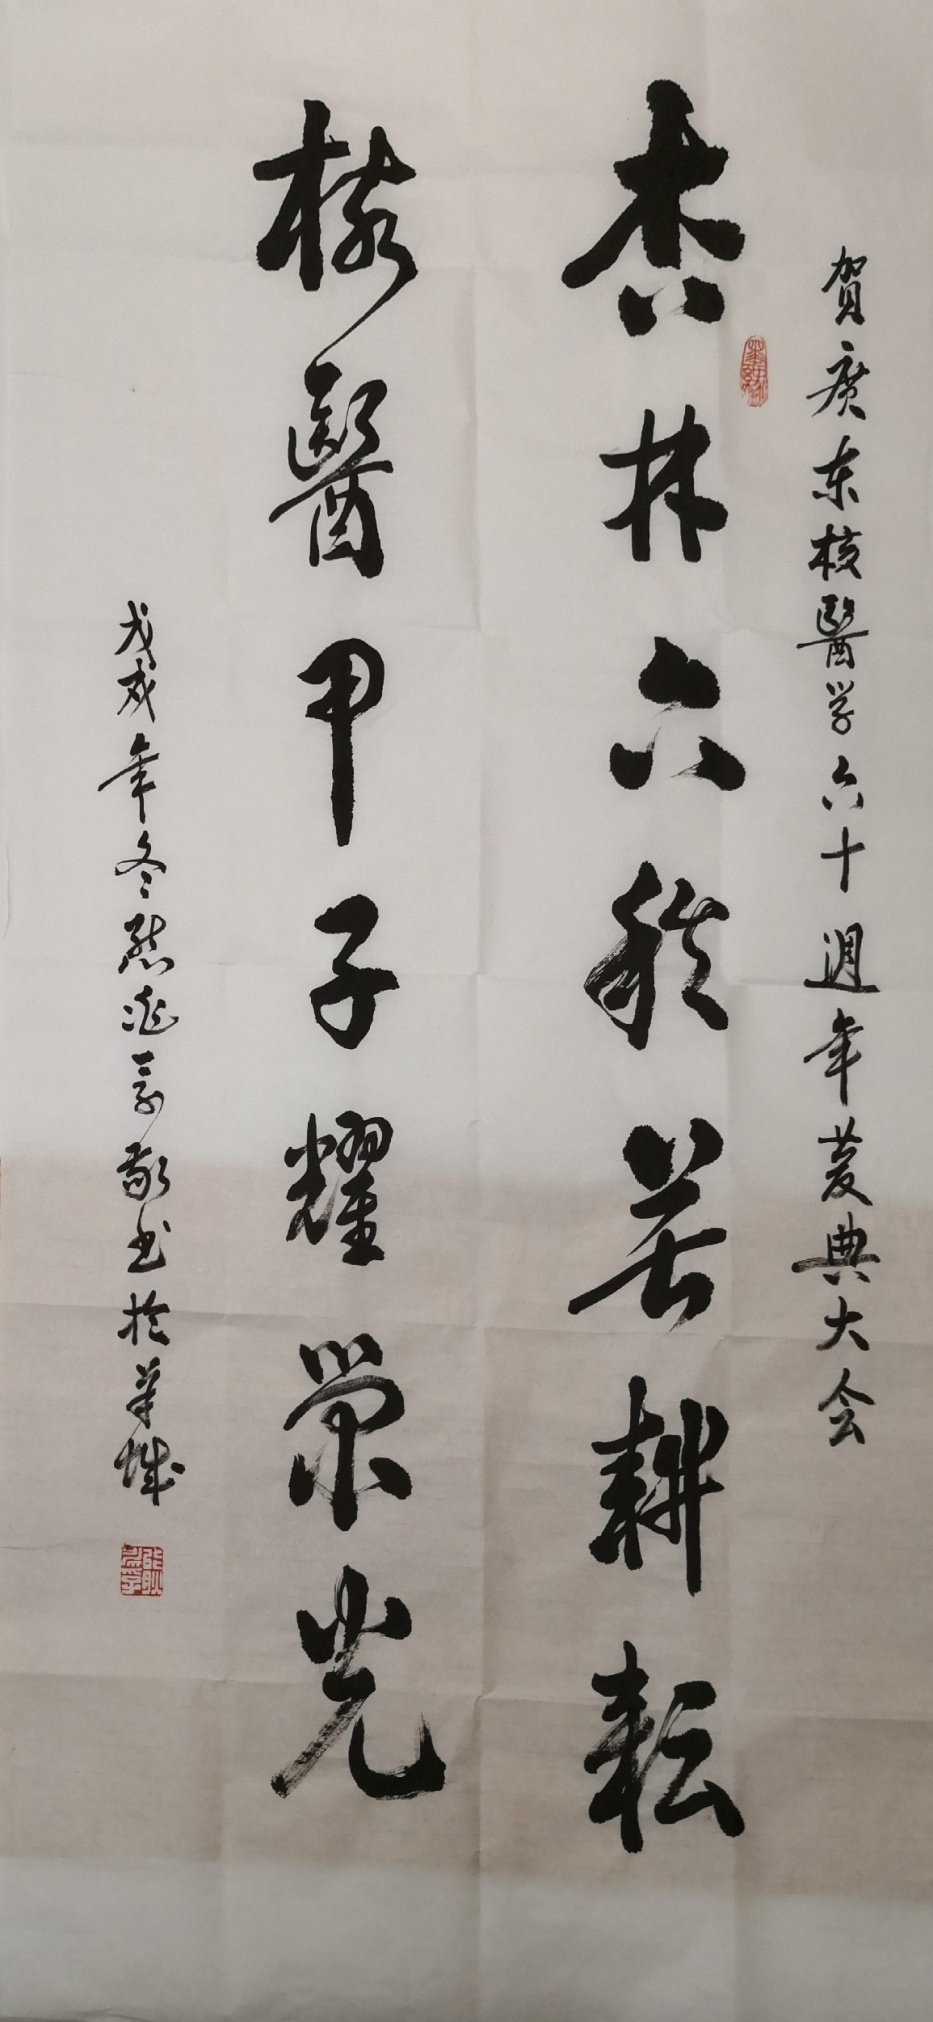 贺广东核醫学六十週年慶典大会
杏林六秩苦耕耘
核醫甲子耀荣光
戊戌年冬熊 敬书於羊城